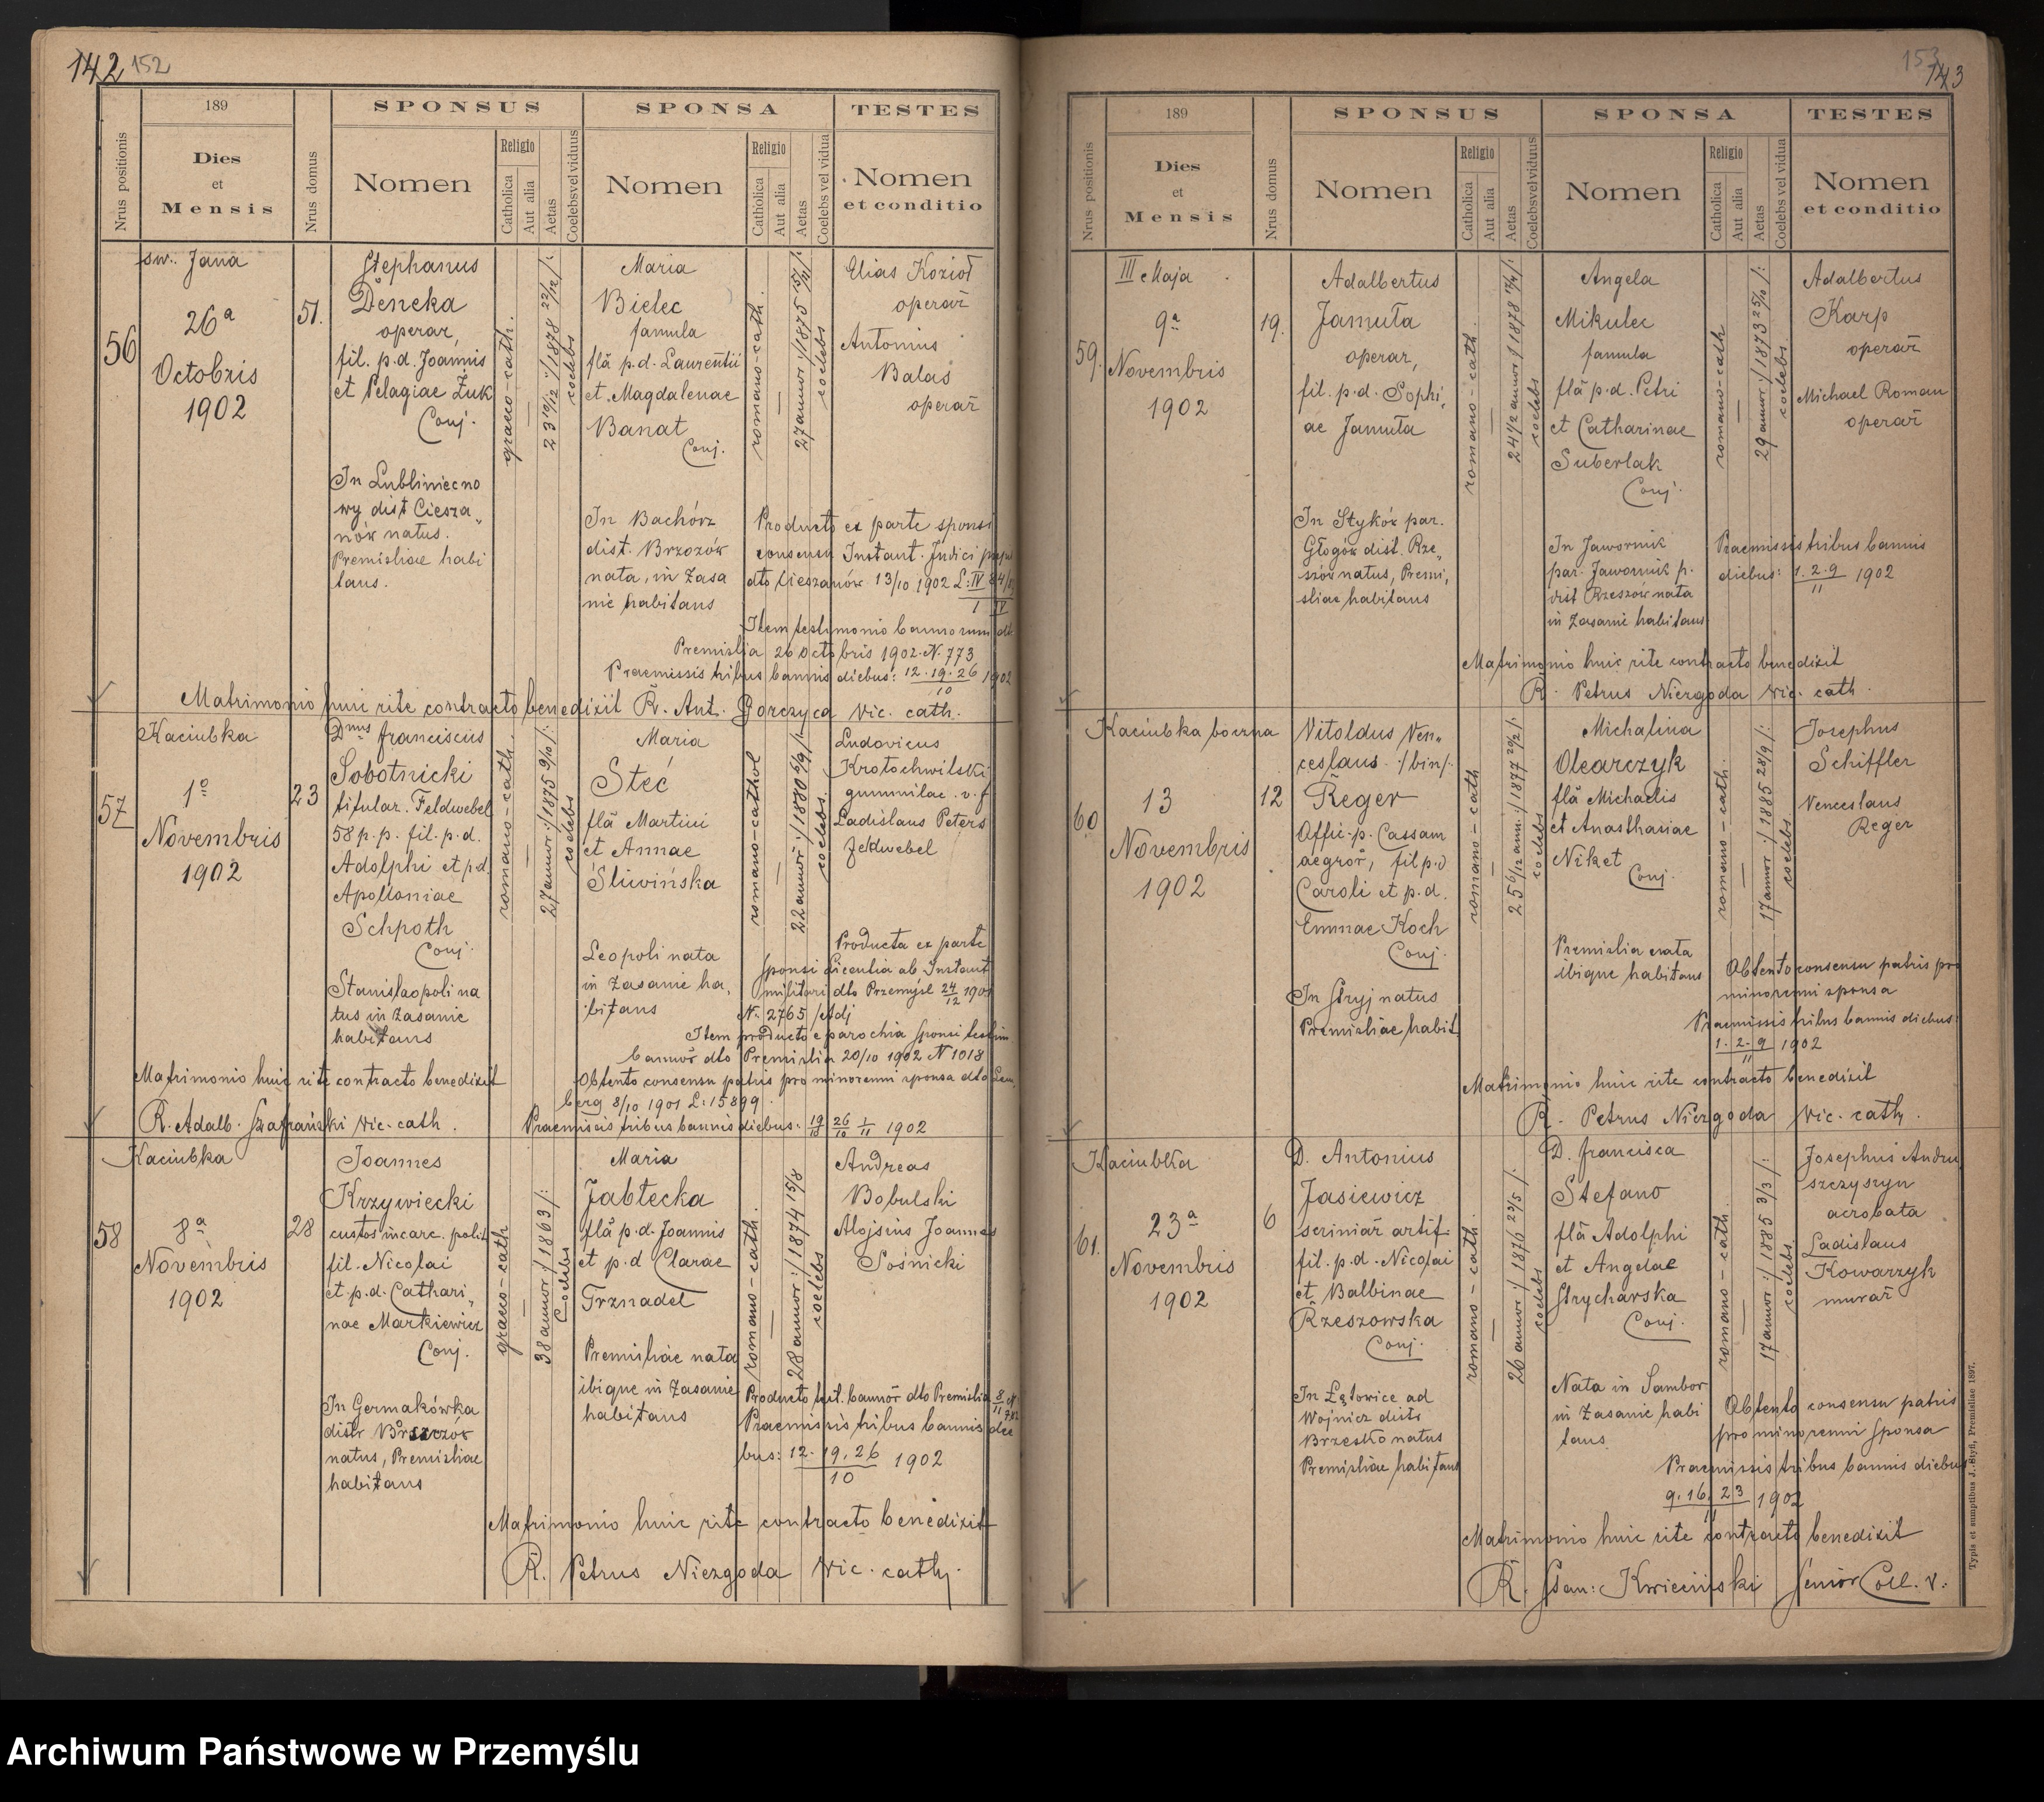 142 152
189
SPONSUS
SPONSA
TESTES
Nrus positionis
Dies
et
Mensis
Nrus domus
Nomen
Religio
Catholica
Aut alia
Aetas
Coelebs vel viduus
Nomen
Religio
Catholica
Aut alia
Aetas
Coelebs vel vidua
Nomen
et conditio
56
św. Jana
26a
Octobris
1902
51.
Stephanus
Deneka
operar,
fil. p.d. Joannis
et Pelagiae Żuk
Conj.
In Lubliniec no
wy dist Ciesza„
nów natus.
Premisliae habi
tans.
graeco-cath.
23 10/12 :/1878 22/12/:
coelebs
Maria
Bielec
famula
fla p.d. Laurentii
et Magdalenae
Banat
Conj.
In Bachórz
dist. Brzozów
nata, in Zasa
nie habitans
romano-cath.
27 annor :/1875
coelebs
Elias Kozioł
operar
Antonius
Balas
operar
Producto ex parte sponsi
consensu Instant. Judici
dto Cieszanów 13/10 1902 L: IV
Item testimonio bannorum dto
Premislia 26 Octobris 1902. N. 773
Praemissis tribus bannis diebus: 12. 19. 26 1902
10
Matrimonio huic rite contracto benedixit R. Ant. Gorczyca vic. cath.
57
Kaciubka
1o
Novembris
1902
23
Dnus Franciscus
Sobotnicki
titular. Feldwebel
58 p.p. fil. p.d.
Adolphi et p.d.
Apolloniae
Schpoth
Conj.
Stanislaopoli na
tus in Zasanie
habitans
romano-cath.
27 annor :/1875 9/10/:
coelebs
Maria
Steć
fla Martini
et Annae
Śliwińska
Leopoli nata
in Zasanie ha,
bitans
romano-cathol
22 annor :/1880 6/9/:
coelebs.
Ludovicus
Krotochwilski
gumnilae. v. f
Ladislaus Peters
Feldwebel
Producta ex parte
Sponsi licentia ab Instant
militari dto Przemyśl 24/12 1901
N. 2765 /Adj
Item producto e parochia Sponsi testim
bannor dto Premislia 20/10 1902 N 1018
Obtento consensu patris pro minorenni sponsa dto Lem
berg 8/10 1901 L: 15899.
Matrimonio huic rite contracto benedixit
R. Adalb. Szafrański vic. cath.
Praemissis tribus bannis diebus: 19/10 26/10 1/11 1902
58
Kaciubka
8a
Novembris
1902
28
Joannes
Krzywiecki
custos incarc. polit
fil. Nicolai
et p.d. Cathari„
nae Markiewicz
Conj.
In Germakówka
distr Borszczów
natus, Premisliae
habitans
graeco-cath
38 annor :/1863/:
Coelebs
Maria
Jabłecka
fla p.d. Joannis
et p.d Clarae
Trznadel
Premisliae nata
ibique in Zasanie
habitans
romano-cath.
28 annor :/1874 15/8
coelebs
Andreas
Bobulski
Alojsius Joannes
Sośnicki
Producto test. bannor dto Premislia 8/11
Praemissis tribus bannis die
bus: 12. 19. 26 1902
10
Matrimonio huic rite contracto benedixit
R. Petrus Niezgoda vic. cath.
153 143
189
SPONSUS
SPONSA
TESTES
Nrus positionis
Dies
et
Mensis
Nrus domus
Nomen
Religio
Catholica
Aut alia
Aetas
Coelebs vel viduus
Nomen
Religio
Catholica
Aut alia
Aetas
Coelebs vel vidua
Nomen
et conditio
59.
III Maja
9a
Novembris
1902
19.
Adalbertus
Jamuła
operar,
fil. p.d. Sophi,
ae Jamuła
In Styków par.
Głogów dist. Rze„
szów natus, Premi,
sliae habitans
romano-cath.
24 1/2 annor
coelebs
Angela
Mikulec
famula
fla p.d. Petri
et Catharinae
Suberlak
Conj.
In Jawornik
par. Jawornik p.
dist Rzeszów nata
in Zasanie habitans
romano-cath
29 annor :/1873 25/10/:
coelebs
Adalbertus
Karp
operar
Michael Roman
operar
Praemissis tribus bannis
diebus: 1. 2. 9 1902
11
Matrimonio huic rite contracto benedixit
R. Petrus Niezgoda vic. cath.
60
Kaciubka boczna
13
Novembris
1902
12
Vitoldus Ven„
ceslaus :/bin/:
Reger
Offic. p. Cassam
aegror, fil p.d
Caroli et p.d.
Emmae Koch
Conj.
In Stryj natus
Premisliae habit
romano-cath
25 6/12 ann. :/1877 20/2/:
coelebs
Michalina
Olearczyk
fla Michaelis
et Anasthasiae
Niket
Conj.
Premislia nata
ibique habitans
romano-cath.
17 annor :/1885 28/9/:
coelebs
Josephus
Schiffler
Venceslaus
Reger
Obtento consensu patris pro
minorenni sponsa
Praemissis tribus bannis diebus:
1. 2. 9 1902
11
Matrimonio huic rite contracto benedixit
R. Petrus Niezgoda vic. cath.
61.
Kaciubka
23a
Novembris
1902
6
D. Antonius
Jasiewicz
scriniar artif.
fil. p.d. Nicolai
et Balbinae
Rzeszowska
Conj.
In Łętowice ad
Wojnicz distr
Brzesko natus
Premisliae habitans
romano-cath.
26 annor :/1876 23/5/:
coelebs
D. Francisca
Stefano
fla Adolphi
et Angelae
Strycharska
Conj.
Nata in Sambor
in Zasanie habi
tans
romano-cath.
17 annor :/1885 3/3/:
coelebs
Josephus Andru
szczyszyn
acrobata
Ladislaus
Kowarzyk
murar
Obtento consensu patris
pro minorenni Sponsa
Praemissis tribus bannis diebus
9. 16. 23 1902
11
Matrimonio huic rite contracto benedixit
R. Stan: Kwieciński Senior Coll. V.
Typis et sumptibus J. Styfi, Premisliae 1897.
Archiwum Państwowe w Przemyślu